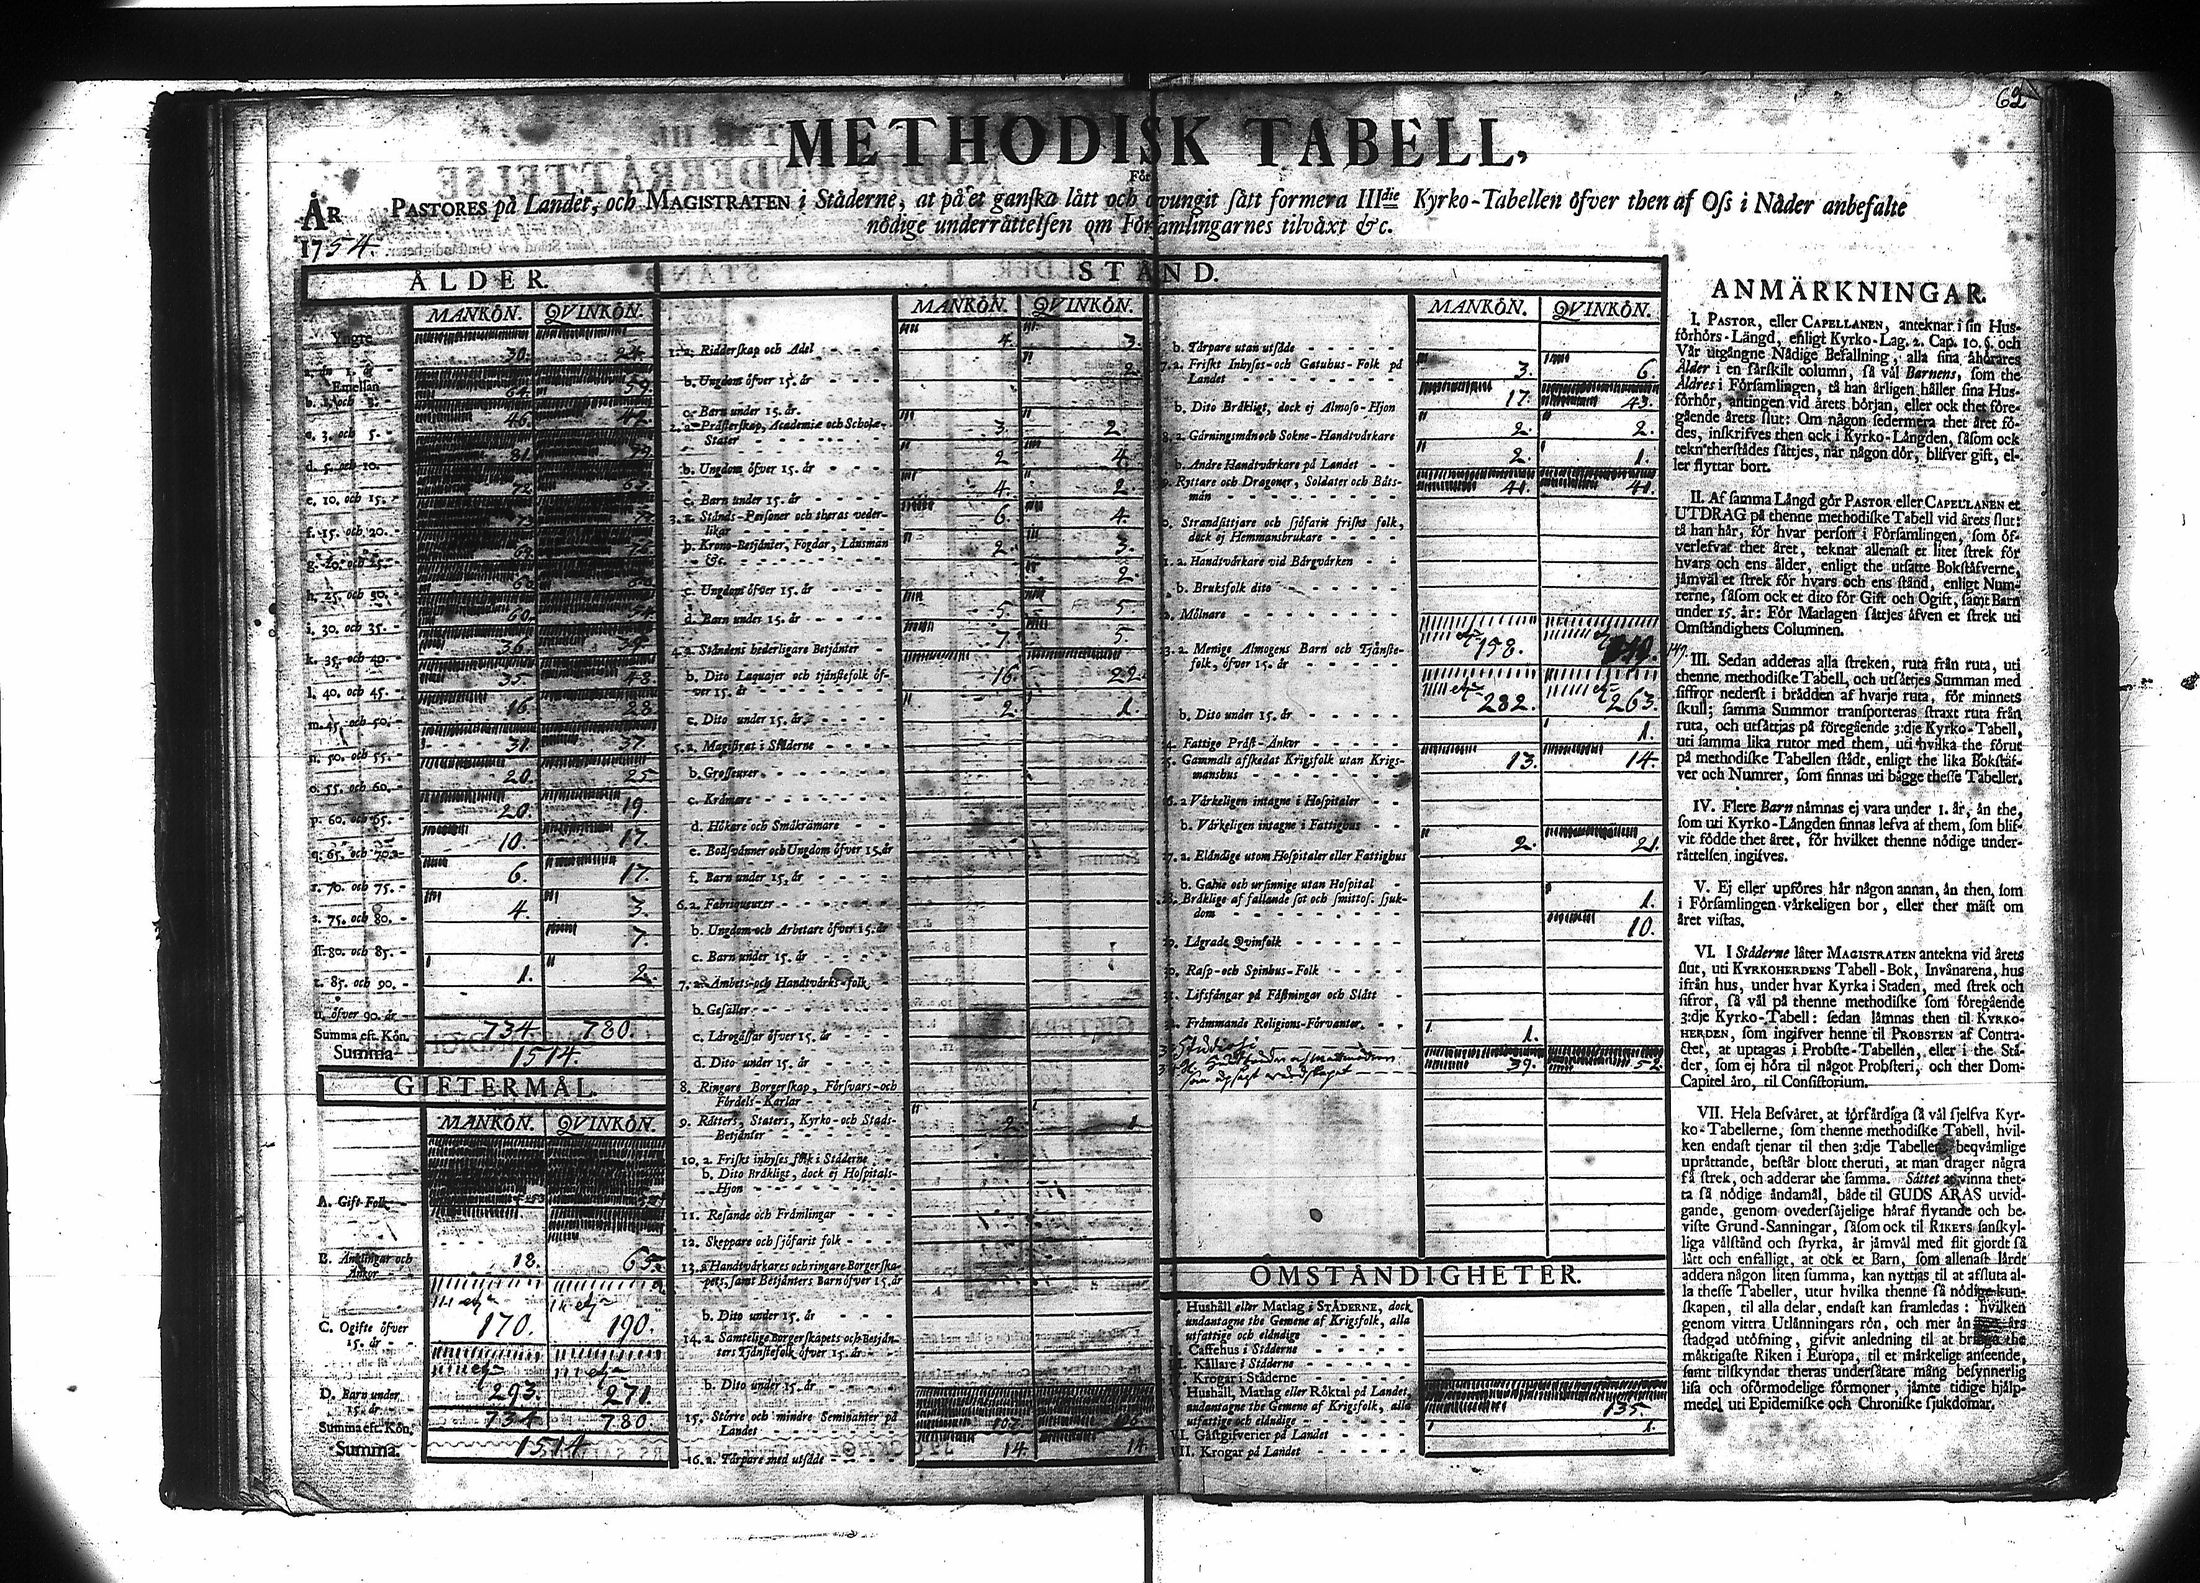 62
METHODISK TABELL,
För
ÅR PASTORES på Landet, och MAGISTRATEN i Ståderne, at på et ganska lått och otvungit sått formera IIIdie Kyrko-Tabellen öfver then af Oss i Nåder anbefalte
1754. nödige underråttelsen om Församlingarnes tilvåxt &c.
ÅLDER.
MANKÖN. QVINKÖN.
Yngre
än 1. år 30. 24.
Emellan
b. 1. och 3. 64. 59.
c. 3. och 5. 46. 42.
d. 5. och 10. 81.
e. 10. och 15. 72.
f. 15. och 20.
g. 20. och 25.
h. 25. och 30.
i. 30. och 35. 60. 54.
k. 35. och 40. 36. 39.
l. 40. och 45. 35. 48.
m. 45. och 50. 16. 28.
n. 50. och 55. 31. 37.
o. 55. och 60. 20. 25
p. 60. och 65. 20. 19
q. 65. och 70. 10. 17.
r. 70. och 75. 6. 17.
s. 75. och 80. 4. 3.
ss. 80. och 85. 7.
t. 85. och 90. 1. 2.
u. öfver 90. år
Summa eft. Kön. 734. 780.
Summa 1514.
GIFTERMÅL.
MANKÖN. QVINKÖN.
A. Gift Folk
B. Änklingar och
Änkor 18. 65.
C. Ogifte öfver
15. år 170. 190.
D. Barn under
15. år 293. 271.
Summa eft. Kön. 734 780
Summa. 1514
STÅND.
MANKÖN. QVINKÖN.
1. a. Ridderskap och Adel 4. 3.
b. Ungdom öfver 15. år 2.
c. Barn under 15. år.
2. a. Pråsterskap, Academiæ och Scholæ-
Stater 3. 2.
b. Ungdom öfver 15. år 2 4.
c. Barn under 15. år 4. 2.
3. a. Stånds-Personer och theras veder-
likar 6. 4.
b. Krono-Betjånter, Fogdar, Länsmän
&c. 2. 3.
c. Ungdom öfver 15. år 2.
d. Barn under 15. år 5. 5.
4. a. Ståndens hederligare Betjånter 7. 5.
b. Dito Laquajer och tjånstefolk öf-
ver 15. år 16. 22.
c. Dito under 15. år 2. 1.
5. a. Magistrat i Ståderne
b. Grosseurer
c. Kråmare
d. Hökare och Småkråmare
e. Bodsvånner och Ungdom öfver 15. år
f. Barn under 15. år
6. a. Fabriqueurer
b. Ungdom och Arbetare öfver 15. år
c. Barn under 15. år
7. a. Ämbets- och Handtvårks-folk
b. Gesåller
c. Lårogåssar öfver 15. år
d. Dito under 15. år
8. Ringare Borgerskap, Försvars- och
Fördels-Karlar
9. Råtters, Staters, Kyrko- och Stads-
Betjånter 2. 1.
10. a. Friskt inhyses folk i Ståderne
b. Dito Bråkligt, dock ej Hospitals-
Hjon
11. Resande och Fråmlingar
12. Skeppare och sjöfarit folk
13. a Handtvårkares och ringare Borgerska-
pets, samt Betjånters Barn öfver 15. år
b. Dito under 15. år
14. a. Samtelige Borgerskapets och Betjån-
ters Tjånstefolk öfver 15. år
b. Dito under 15. år
15. Större och mindre Seminanter på
Landet 107. 106.
16. a. Torpare med utsåde 14. 14.
MANKÖN. QVINKÖN.
b. Torpare utan utsåde
17. a. Friskt Inhyses- och Gatuhus-Folk på
Landet 3. 6.
b. Dito Bråkligt, dock ej Almoso-Hjon 17. 43.
18. a. Gårningsmån och Sokne-Handtvårkare 2. 2.
b. Andre Handtvårkare på Landet 2. 1.
Ryttare och Dragoner, Soldater och Båts-
mån 41. 41.
Strandsittjare och sjöfarit friskt folk,
dock ej Hemmansbrukare
a. Handtvårkare vid Bårgvårken
b. Bruksfolk dito
Mölnare
a. Menige Almogens Barn och Tjånste-
folk, öfver 15. år 158. 149.
b. Dito under 15. år 282. 263.
Fattige Pråst-Änkor 1.
Gammalt afskedat Krigsfolk utan Krigs-
manshus 13. 14.
a Vårkeligen intagne i Hospitaler
b. Vårkeligen intagne i Fattighus
a. Elåndige utom Hospitaler eller Fattighus 2. 21.
b. Galne och ursinnige utan Hospital
Bråklige af fallande sot och smittos: sjuk-
dom 1.
Lågrade Qvinfolk 10.
Rasp- och Spinhus-Folk
Lifsfångar på Fåstningar och Slått
Fråmmande Religions-Förvanter
Studiosi 1.
39. 52.
OMSTÅNDIGHETER.
Hushåll eller Matlag i STÅDERNE, dock
undantagne the Gemene af Krigsfolk, alla
utfattige och elåndige
Caffehus i Ståderne
Kållare i Ståderne
Krogar i Ståderne
Hushåll, Matlag eller Röktal på Landet,
undantagne the Gemene af Krigsfolk, alla
utfattige och elåndige 135.
Gåstgifverier på Landet 1 1.
VII. Krogar på Landet
ANMÄRKNINGAR.
I. PASTOR, eller CAPELLANEN, anteknar i sin Hus-
förhörs-Långd, enligt Kyrko-Lag. 2. Cap. 10. §. och
Vår utgångne Nådige Befallning, alla sina åhörares
Ålder i en sårskilt column, så vål Barnens, som the
Äldres i Församlingen, tå han årligen håller sina Hus-
förhör, antingen vid årets början, eller ock thet före-
gående årets slut: Om någon sedermera thet året fö-
des, inskrifves then ock i Kyrko-Långden, såsom ock
tekn therstådes såttjes, når någon dör, blifver gift, el-
ler flyttar bort.
II. Af samma Långd gör PASTOR eller CAPELLANEN et
UTDRAG på thenne methodiske Tabell vid årets slut:
tå han hår, för hvar person i Församlingen, som öf-
verlefvat thet året, teknar allenast et litet strek för
hvars och ens ålder, enligt the utsatte Bokståfverne,
jåmvål et strek för hvars och ens stånd, enligt Num-
rerne, såsom ock et dito för Gift och Ogift, samt Barn
under 15. år: För Matlagen såttjes åfven et strek uti
Omståndighets Columnen.
III. Sedan adderas alla streken, ruta från ruta, uti
thenne methodiske Tabell, och utsåttjes Summan med
siffror nederst i brådden af hvarje ruta, för minnets
skull; samma Summor transporteras straxt ruta från
ruta, och utsåttjas på föregående 3:dje Kyrko-Tabell,
uti samma lika rutor med them, uti hvilka the förut
på methodiske Tabellen stådt, enligt the lika Bokståf-
ver och Numrer, som finnas uti bågge thesse Tabeller.
IV. Flere Barn nåmnas ej vara under 1. år, ån the,
som uti Kyrko-Långden finnas lefva af them, som blif-
vit födde thet året, för hvilket thenne nödige under-
råttelsen ingifves.
V. Ej eller upföres hår någon annan, ån then, som
i Församlingen vårkeligen bor, eller ther måst om
året vistas.
VI. I Ståderne låter MAGISTRATEN antekna vid årets
slut, uti KYRKOHERDENS Tabell-Bok, Invånarena, hus
ifrån hus, under hvar Kyrka i Staden, med strek och
sifror, så vål på thenne methodiske som föregående
3:dje Kyrko-Tabell: sedan låmnas then til KYRKO-
HERDEN, som ingifver henne til PROBSTEN af Contra-
ctet, at uptagas i Probste-Tabellen, eller i the Stå-
der, som ej höra til något Probsteri, och ther Dom-
Capitel åro, til Consistorium.
VII. Hela Besvåret, at förfårdiga så vål sjelfva Kyr-
ko-Tabellerne, som thenne methodiske Tabell, hvil-
ken endast tjenar til then 3:dje Tabellens beqvåmlige
upråttande, består blott theruti, at man drager några
få strek, och adderar the samma. Såttet at vinna thet-
ta så nödige åndamål, både til GUDS ÄRAS utvid-
gande, genom ovedersåjelige håraf flytande och be-
viste Grund-Sanningar, såsom ock til RIKETS sanskyl-
liga vålstånd och styrka, år jåmvål med flit gjordt så
lått och enfalligt, at ock et Barn, som allenast lårdt
addera någon liten summa, kan nyttjas til at afsluta al-
la thesse Tabeller, utur hvilka thenne så nödige kun-
skapen, til alla delar, endast kan framledas: hvilken
genom vittra Utlånningars rön, och mer ån
stadgad utöfning, gifvit anledning til at bringa the
måktigaste Riken i Europa, til et mårkeligt anseende,
samt tilskyndat theras undersåtare mång besynnerlig
lisa och oförmodelige förmoner, jåmte tidige hjålp-
medel uti Epidemiske och Chroniske sjukdomar.